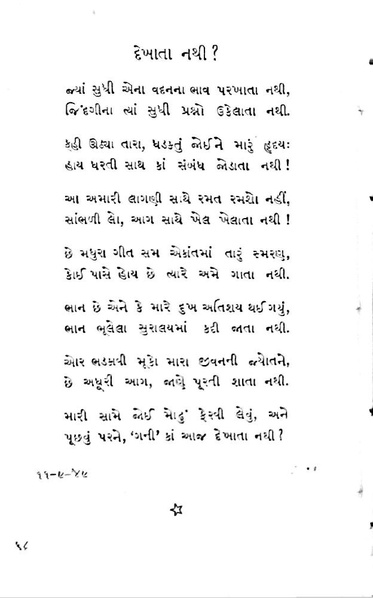 દેખાતા નથી ?
જ્યાં સુધી એના વદનના ભાવ પરખાતા નથી,
જિંદગીના ત્યાં સુધી પ્રશ્નો ઉકેલાતા નથી.
કહી ઊઠ્યા તારા, ધડકતું જોઈને મારું હૃદયઃ
હાય ધરતી સાથ કાં સંબંધ જોડાતા નથી !
આ અમારી લાગણી સાથે રમત રમશો નહીં,
સાંભળી લો, આગ સાથે ખેલ ખેલાતા નથી !
છે મધુરા ગીત સમ એકાંતમાં તારું સ્મરણ,
કોઈ પાસે હોય છે ત્યારે અમે ગાતા નથી.
ભાન છે એને કે મારે દુખ અતિશય થઈ ગયું,
ભાન ભૂલેલા સુરાલયમાં કદી જાતા નથી.
ઓર ભડકાવી મૂકો મારા જીવનની જ્યોતને,
છે અધૂરી આગ, જાણે પૂરતી શાતા નથી.
મારી સામે જોઈ મોઢું ફેરવી લેવું, અને
પૂછવું પરને, ‘ગની’ કાં આજ દેખાતા નથી ?
૧૧-૯-૪૯
૬૮